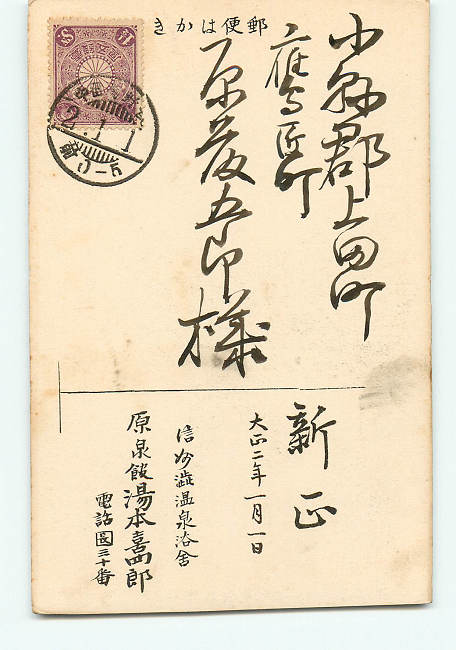 郵便はかき
小縣郡上田町
鷹匠町
原茂五郎様
新正
大正二年一月一日
信州澁温泉浴舎
原泉館湯本喜四郎
電話園三十番